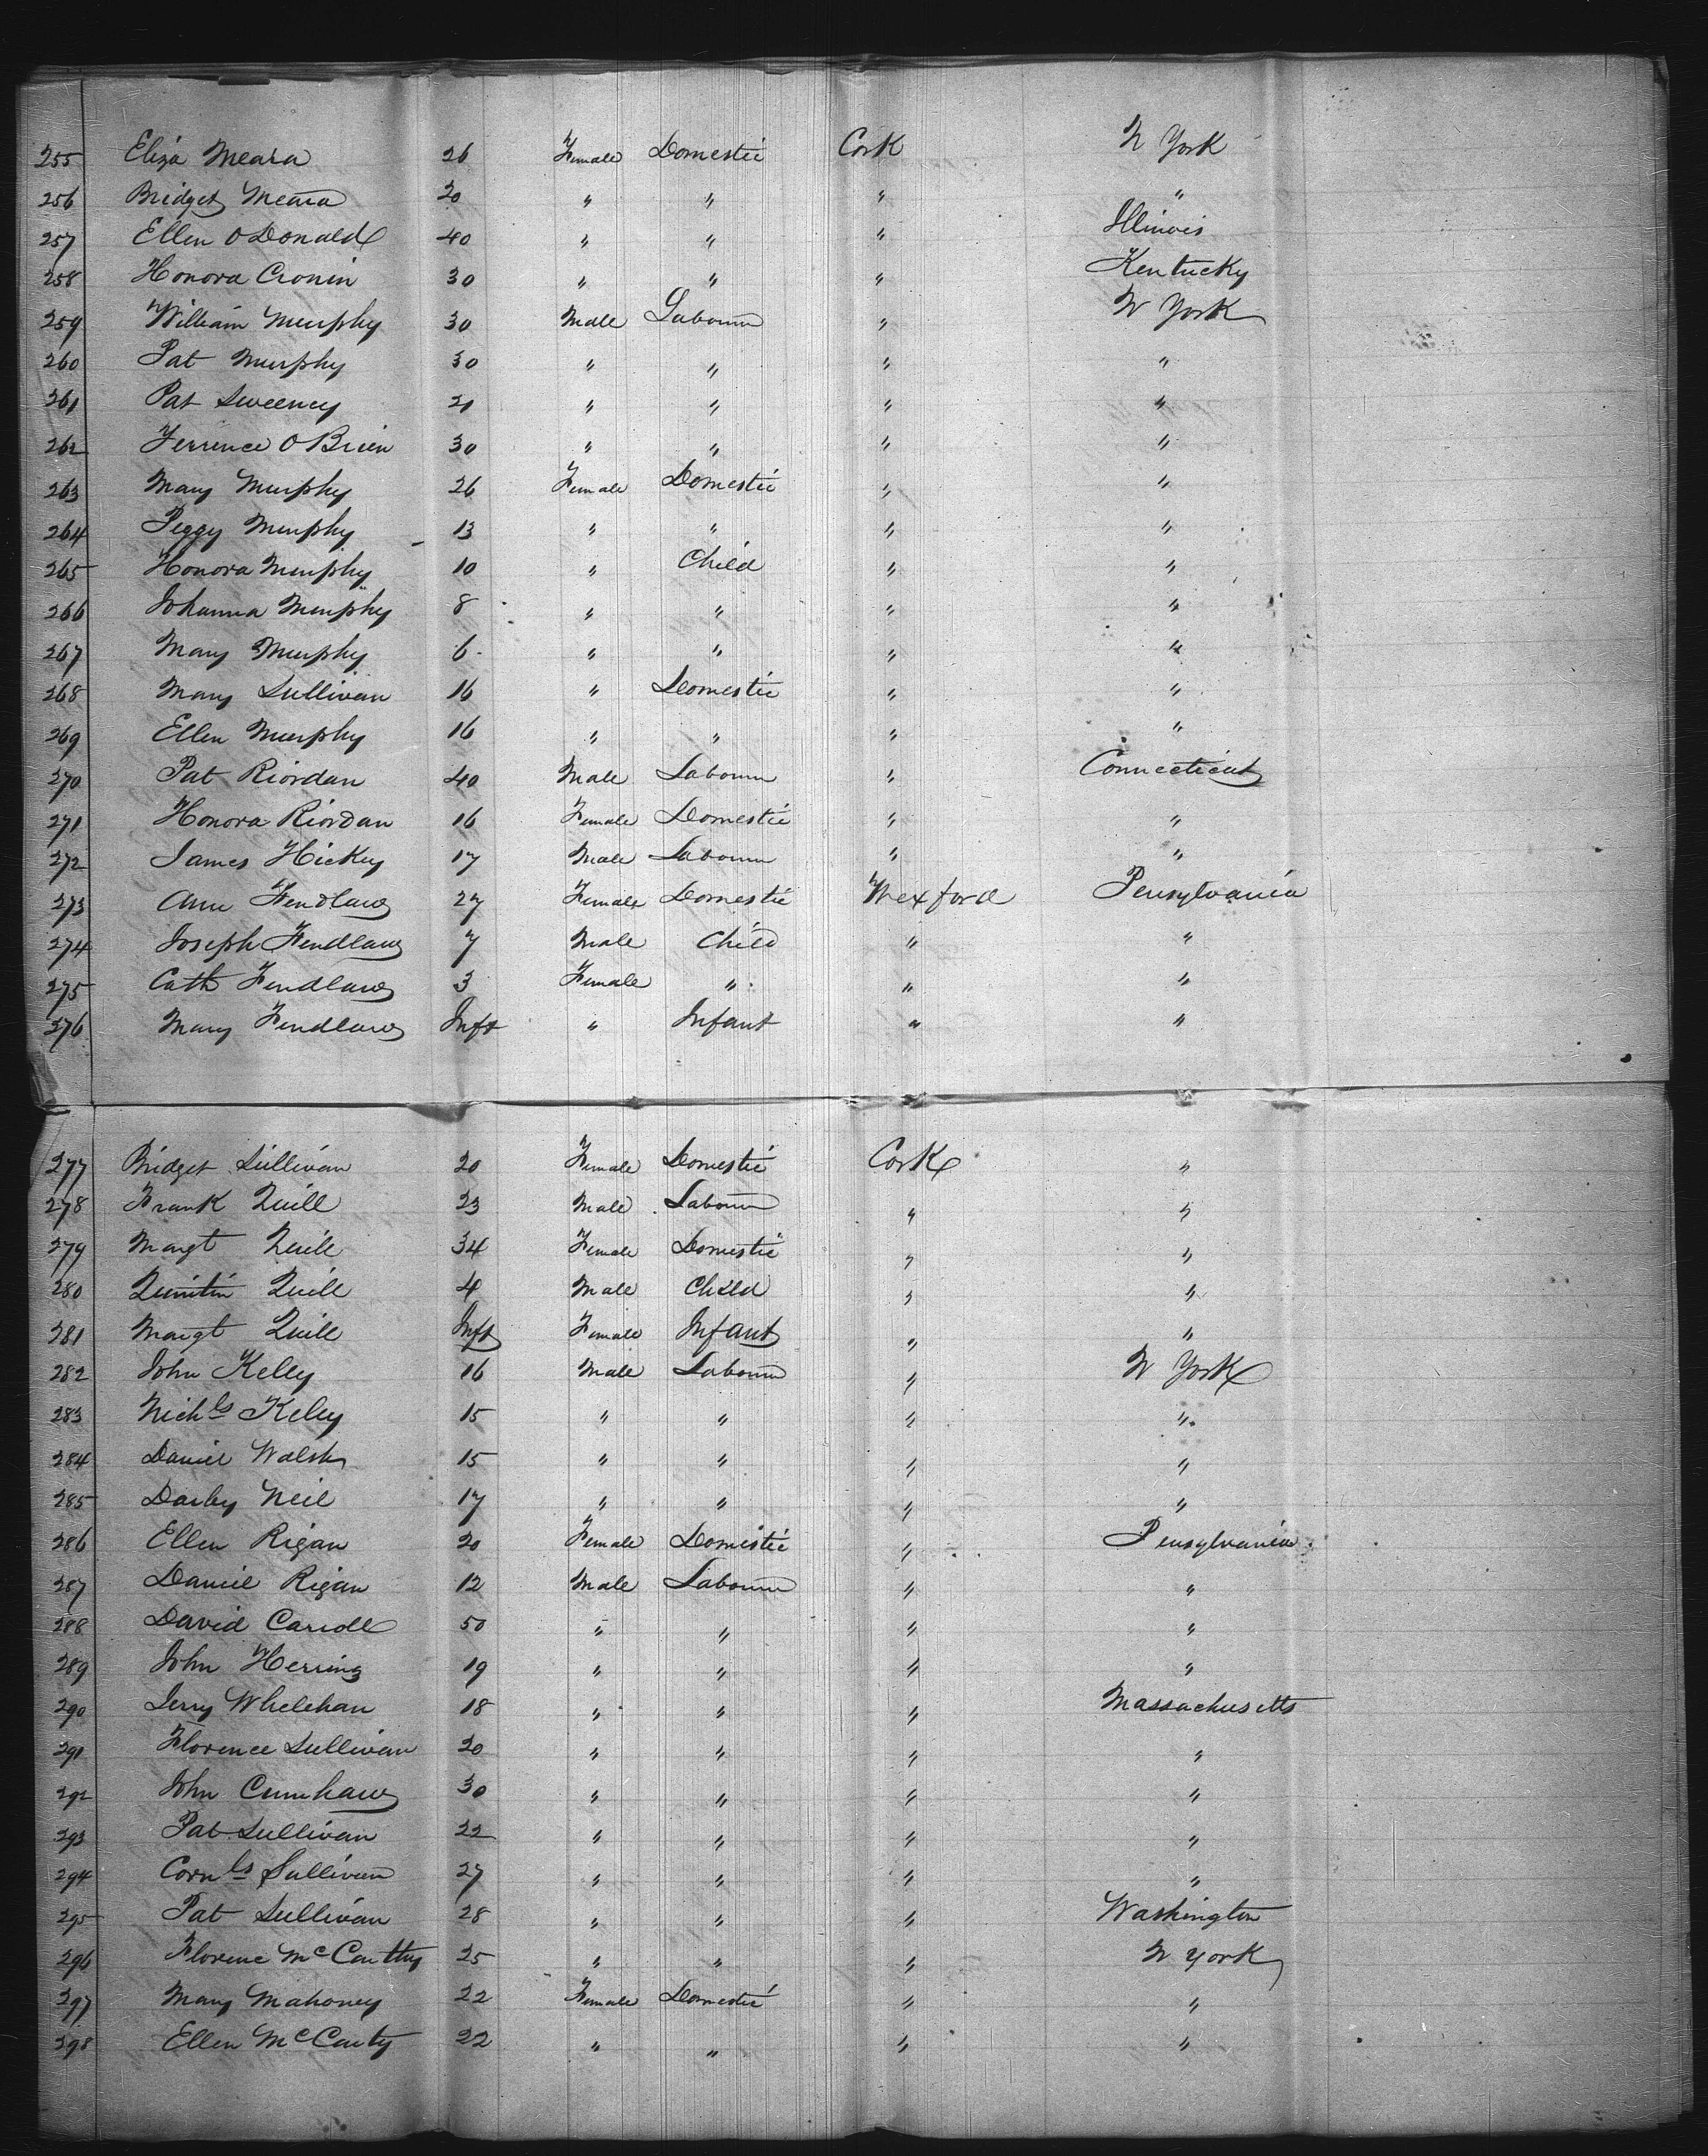 255 Eliza Meara 26 Female Domestic Cork N York
256 Bridget Meara 20 " " " "
257 Ellen O Donald 40 " " " Illinois
258 Honora Cronin 30 " " " Kentucky
259 William Murphy 30 Male Labourer " N York
260 Pat Murphy 30 " " " "
261 Pat Sweeney 21 " " " "
262 Terrence O Brien 30 " " " "
263 Mary Murphy 26 Female Domestic " "
264 Peggy Murphy 13 " " " "
265 Honora Murphy 10 " Child " "
266 Johanna Murphy 8 " " " "
267 Mary Murphy 6 " " " "
268 Mary Sullivan 16 " Domestic " "
269 Ellen Murphy 16 " " " "
270 Pat Riordan 40 Male Labourer " Connecticut
271 Honora Riordan 16 Female Domestic " "
272 James Hickey 17 Male Labourer " "
273 Ann Fendlaw 27 Female Domestic Wexford Pensylvania
274 Joseph Fendlaw 7 Male Child " "
275 Cath Fendlaw 3 Female " " "
276 Mary Fendlaw Inft " Infant " "
277 Bridget Sullivan 20 Female Domestic Cork "
278 Frank Quill 23 Male Labourer " "
279 Margt Quill 34 Female Domestic " "
280 Quintin Quill 4 Male Child " "
281 Margt Quill Inft Female Infant " "
282 John Kelly 16 Male Labourer " N York
283 Nichls Kelly 15 " " " "
284 Daniel Walsh 15 " " " "
285 Darby Neil 17 " " " "
286 Ellen Rigan 20 Female Domestic " Pensylvania
287 Daniel Rigan 12 Male Labourer " "
288 David Caroll 50 " " " "
289 John Herring 19 " " " "
290 Jerry Whelehan 18 " " " Massachusetts
291 Florence Sullivan 20 " " " "
292 John 30 " " " "
293 Pat Sullivan 22 " " " "
294 Cornls Sullivan 27 " " " "
295 Pat Sullivan 28 " " " Washington
296 Florence McCarthy 25 " " " N York
297 Mary Mahoney 22 Female Domestic " "
298 Ellen McCarty 22 " " " "